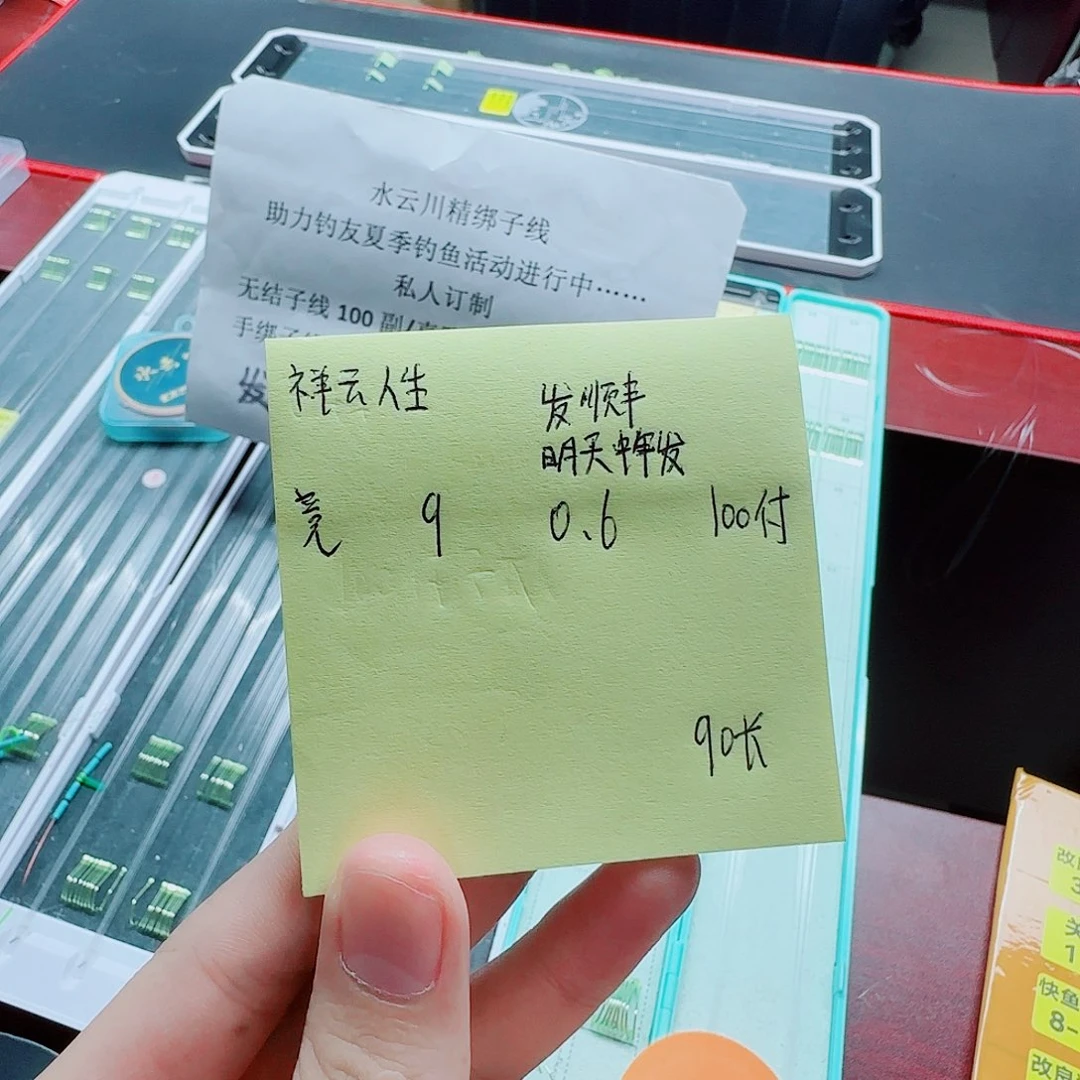 水云川精绑子线
助力钓友夏季钓鱼活动进行中……
私人订制
无结子线 100 副/
手绑子线
发
祥云人生
发顺丰
明天中午发
亮 9 0.6 100付
90长
改
3
关
1
快鱼
8-
改良